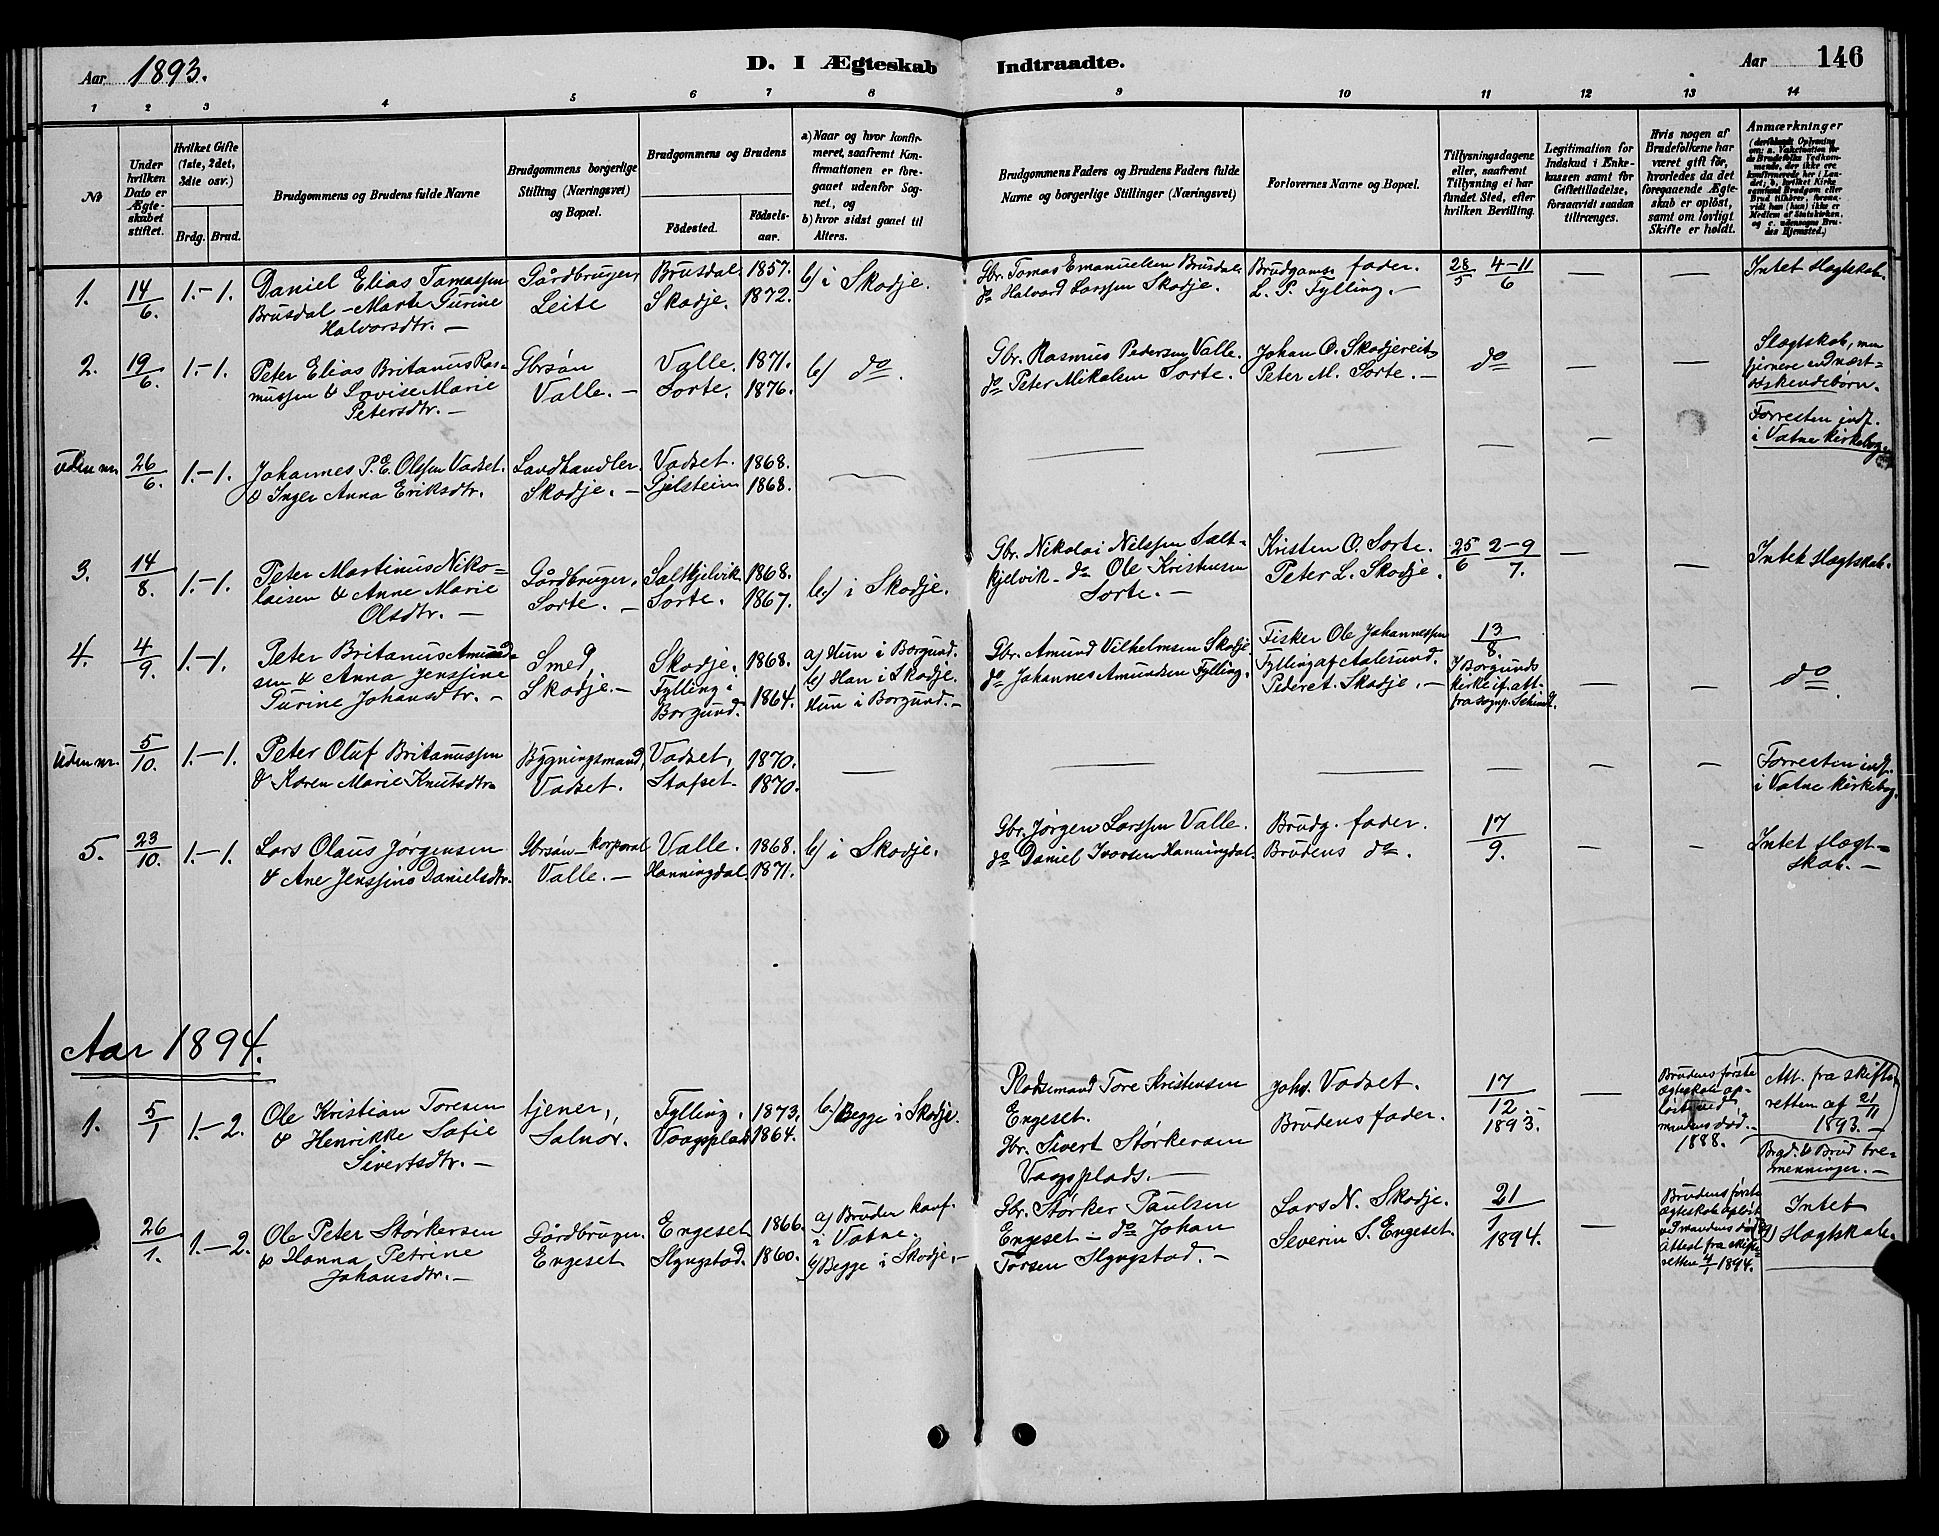 Aar 1893. D. I Ægteskab Indtraadte. Aar 146
1 2 3 4 5 6 7 8 9 10 11 12 13 14
№
Under
hvilken
Dato er
Ægte-
skabet
stiftet.
Hvilket Gifte
(1ste, 2det,
3die osv.)
Brdg. Brud.
Brudgommens og Brudens fulde Navne
Brudgommens borgerlige
Stilling (Næringsvei)
og Bopæl.
Brudgommens og Brudens
Födested.
Födsels-
aar.
a) Naar og hvor konfir-
meret, saafremt Kon-
firmationen er fore-
gaaet udenfor Sog-
net, og
b) hvor sidst gaaet til
Alters.
Brudgommens Faders og Brudens Faders fulde
Navne og borgerlige Stillinger (Næringsvei)
Forlovernes Navne og Bopæl.
Tillysningsdagene
eller, saafremt
Tillysning ei har
fundet Sted, efter
hvilken Bevilling.
Legitimation for
Indskud i Enke-
kassen samt for
Giftetilladelse,
forsaavidt saadan
tiltrænges.
Hvis nogen af
Brudefolkene har
været gift för,
hvorledes da det
foregaaende Ægte-
skab er oplöst,
samt om lovligt
Skifte er holdt.
Anmærkninger
1. 14/6. 1.–1.
Daniel Elias Tomassen
Brusdal – Marte Turine
Halvorsdtr. –
Gårdbruger,
Leite
Brusdal. 1857.
Skodje. 1872.
b) i Skodje.
Gbr. Tomas Emanuelsen Brusdal.
do Halvard Larssen Skodje.
Brudgoms fader.
L. P. Fylling. –
28/5 4–11/6
—
—
Intet slægtskab.
2. 19/6. 1.–1.
Peter Elias Britanus Ras-
mussen & Lovise Marie
Petersdtr. –
Gbrsøn
Valle. –
Valle. 1871.
Sorte. 1876.
b) do.
Gbr. Rasmus Pedersen Valle.
do Peter Mikalsen Sorte.
Johan O. Skodjereit
Peter M. Sorte. –
do
—
—
Slægtskab, men
fjernere end næst-
sødskendebørn.
uden nr. 26/6. 1.–1.
Johannes P. E. Olsen Vadset.
& Inger Anna Eriksdtr.
Landhandler.
Skodje. –
Vadset. 1868.
Gjelstein 1868.
—
—
—
—
—
Forresten indf.
i Vatne kirkebog.
3. 14/8. 1.–1.
Peter Martinus Niko-
laisen & Anne Marie
Olsdtr. –
Gårdbruger.
Sorte. –
Saltkjelvik 1868.
Sorte. 1867.
b.) i Skodje.
Gbr. Nikolai Nilssen Salt-
kjelvik – do Ole Kristensen
Sorte. –
Kristen O. Sorte.
Peter L. Skodje.
25/6 2–9/7.
—
—
Intet slægtskab.
4. 4/9. 1.–1.
Peter Britanus Amund-
sen & Anna Jenssine
Turine Johansdtr. –
Smed,
Skodje. –
Skodje. 1868.
Fylling i
Borgund. 1864.
a) Hun i Borgund.
b) Han i Skodje.
Hun i Borgund. –
Gbr. Amund Vilhelmsen Skodje
do Johannes Amundsen Fylling.
Fisker Ole Johannessen
Fylling af Aalesund.
Peder Skodje. –
13/8.
I Borgunds
kirke if. att.
fra sognp.
—
—
do.
Uden nr. 5/10. 1.–1.
Peter Oluf Britanussen
& Karen Marie Knutsdtr.
Bygningsmand,
Vadset.
Vadset, 1870.
Stafset. 1870.
—
—
—
—
—
—
Forresten indf.
i Vatne kirkebog.
5. 23/10. 1.–1.
Lars Olaus Jørgensen
& Ane Jenssine Danielsdtr.
Gbrsøn – korporal
Valle. –
Valle. 1868.
Hanningdal. 1871.
b) i Skodje.
Gbr. Jørgen Larssen Valle.
do Daniel Ivarsen Hanningdal.
Brudg. fader.
Brudens do.
17/9.
—
—
Intet slægt-
skab. –
Aar 1894.
1. 5/1 1.–2.
Ole Kristian Toresen
& Henrikke Sofie
Sivertsdtr. –
tjener,
Solnør.
Fylling, 1873.
Vaagsplads 1864.
b.) Begge i Skodje.
Pladsemand Tore Kristensen
Engeset.
Gbr. Sivert Størkersen
Vaagsplads. –
Johs. Vadset.
Brudens fader.
17/12. –
1893.
—
Brudens første
ægteskab op-
løst ved
mandens død. –
1888.
Att. fra skifte-
retten af 21/11
1893. –
Brgd. & Brud tre-
menninger. –
26/1. 1.–2.
Ole Peter Størkersen
& Hanna Petrine
Johansdtr. –
Gårdbruger.
Engeset
Engeset 1866.
Slyngstad. 1860.
a) Bruden konf.
i Vatne.
b) Begge i Skodje. –
Gbr. Størker Paulsen
Engeset – do Johan
Torsen Slyngstad. –
Lars N. Skodje.
Severin S. Engeset.
21/1
1894.
—
Brudens første
ægteskab opløst
ved mandens død
Attest fra skifte-
retten 4/1 1894.
Intet
slægtskab.